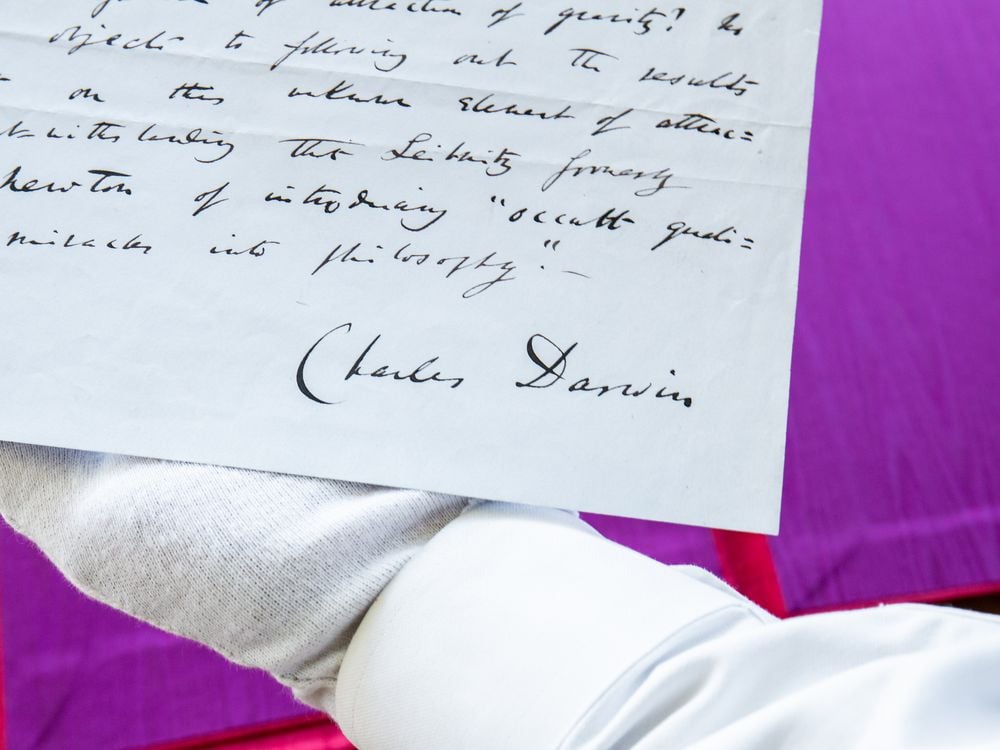 of attraction of gravity? No
objects to following out the results
on this unknown element of attrac=
withstanding that Leibnitz formerly
Newton of introducing "occult quali=
miracles into philosophy".—
Charles Darwin